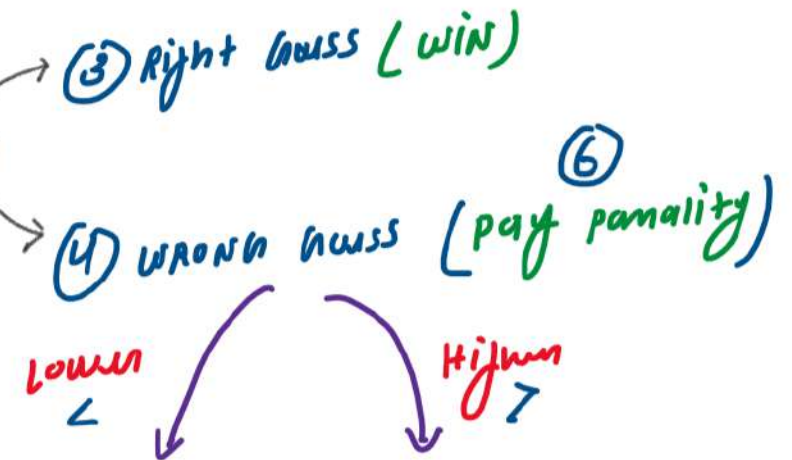 ③ Right Guess (WIN)
⑥
④ WRONG Guess (Pay Panality)
Lower Higher
< >